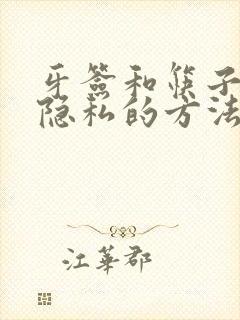 牙签和筷子
隐私的方法
江華郡